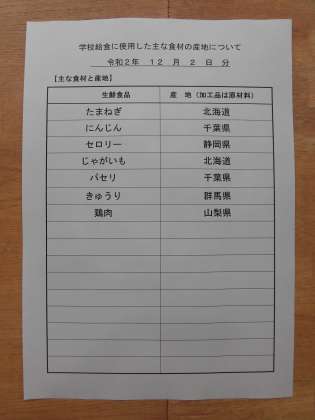 学校給食に使用した主な食材の産地について
令和2年 12 月 2 日 分
【主な食材と産地】
生鮮食品 産 地（加工品は原材料）
たまねぎ 北海道
にんじん 千葉県
セロリー 静岡県
じゃがいも 北海道
パセリ 千葉県
きゅうり 群馬県
鶏肉 山梨県